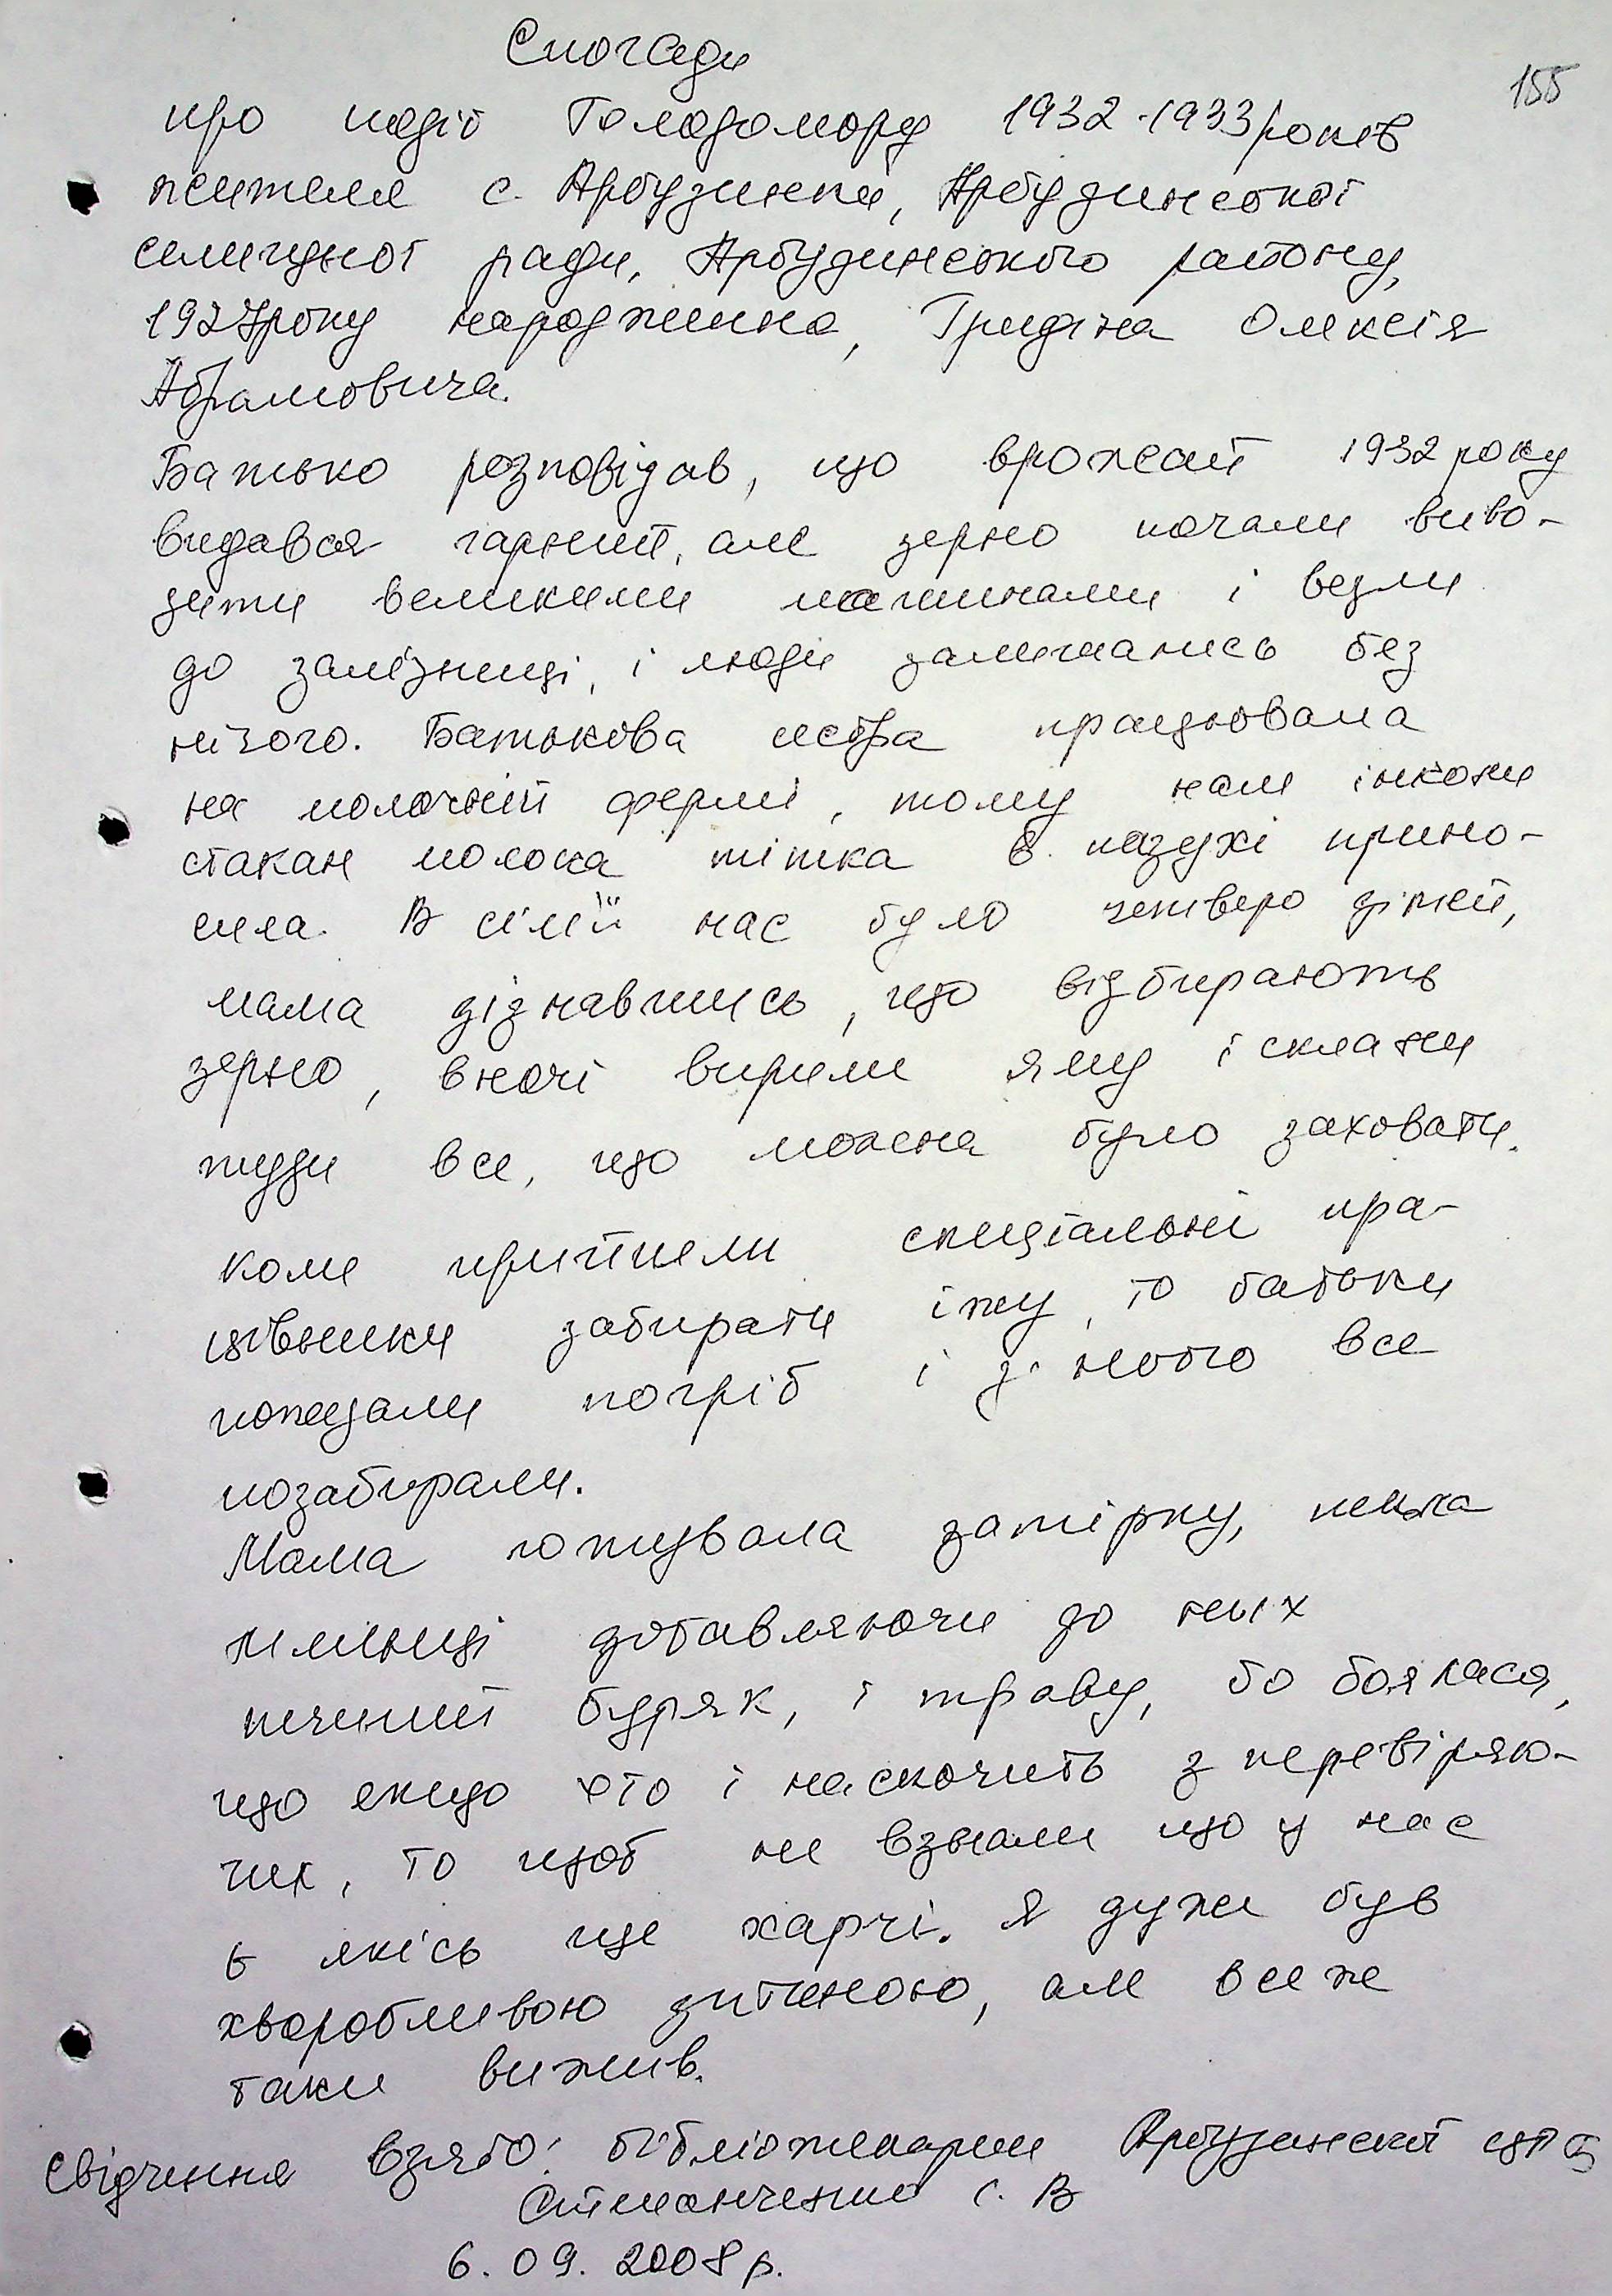 Спогади
155
про події Голодомору 1932-1933 років
жителя с. Арбузинки, Арбузинської
селищної ради, Арбузинського району,
1927 року народження, Гридіна Олексія
Абрамовича.
Батько розповідав, що врожай 1932 року
видався гарний, але зерно почали виво-
зити великими машинами і везли
до залізниці, і люди залишались без
нічого. Батькова сестра працювала
на молочній фермі, тому нам інколи
стакан молока тітка в пазухі прино-
сила. В сім'ї нас було четверо дітей,
мама дізнавшись, що відбирають
зерно, вночі вирили яму і склали
туди все, що можна було заховати.
Коли прийшли спеціальні пра-
цівники забирати їжу, то батьки
показали погріб і з нього все
позабирали.
Мама готувала затірку, пекла
млинці добавляючи до них
печений буряк, і траву, бо боялася,
що якщо хто і наскочить з перевіряю-
чих, то щоб не взнали що у нас
є якісь ще харчі. Я дуже був
хворобливою дитиною, але все же
таки вижив.
Свідчення взято: бібліотекарем Арбузинської ЦРБ
Степанченко С. В
6.09.2008 р.